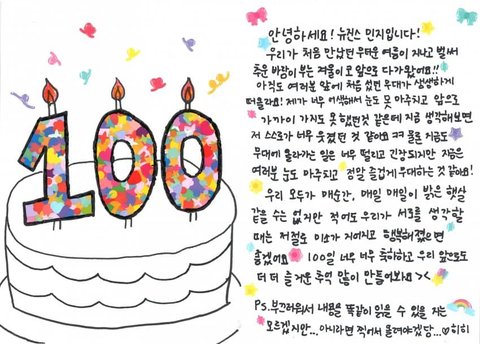 100
안녕하세요! 뉴진스 민지입니다!
우리가 처음 만났던 무더운 여름이 지나고 벌써
추운 바람이 부는 겨울이 코 앞으로 다가왔어요!!
아직도 여러분 앞에 처음 섰던 무대가 생생하게
떠올라요! 제가 너무 어색해서 눈도 못 마주치고 앞으로
가까이 가지도 못 했던것 같은데 지금 생각해보면
저 스스로가 너무 웃겼던 것 같아요 ㅋㅋ 물론 지금도
무대에 올라가는 일은 너무 떨리고 긴장되지만 지금은
여러분 눈도 마주치고 정말 즐겁게 무대하는 것 같아요!
우리 모두가 매순간, 매일 매일이 밝은 햇살
같을 수는 없지만 적어도 우리가 서로를 생각할
때는 저절로 미소가 지어지고 행복해졌으면
좋겠어요 100일 너무 너무 축하하고 우리 앞으로도
더 더 즐거운 추억 많이 만들어봐요 ><
Ps. 부끄러워서 내용을 똑같이 읽을 수 있을 지는
모르겠지만... 아니라면 적어서 올려야겠당... ♡ 히히